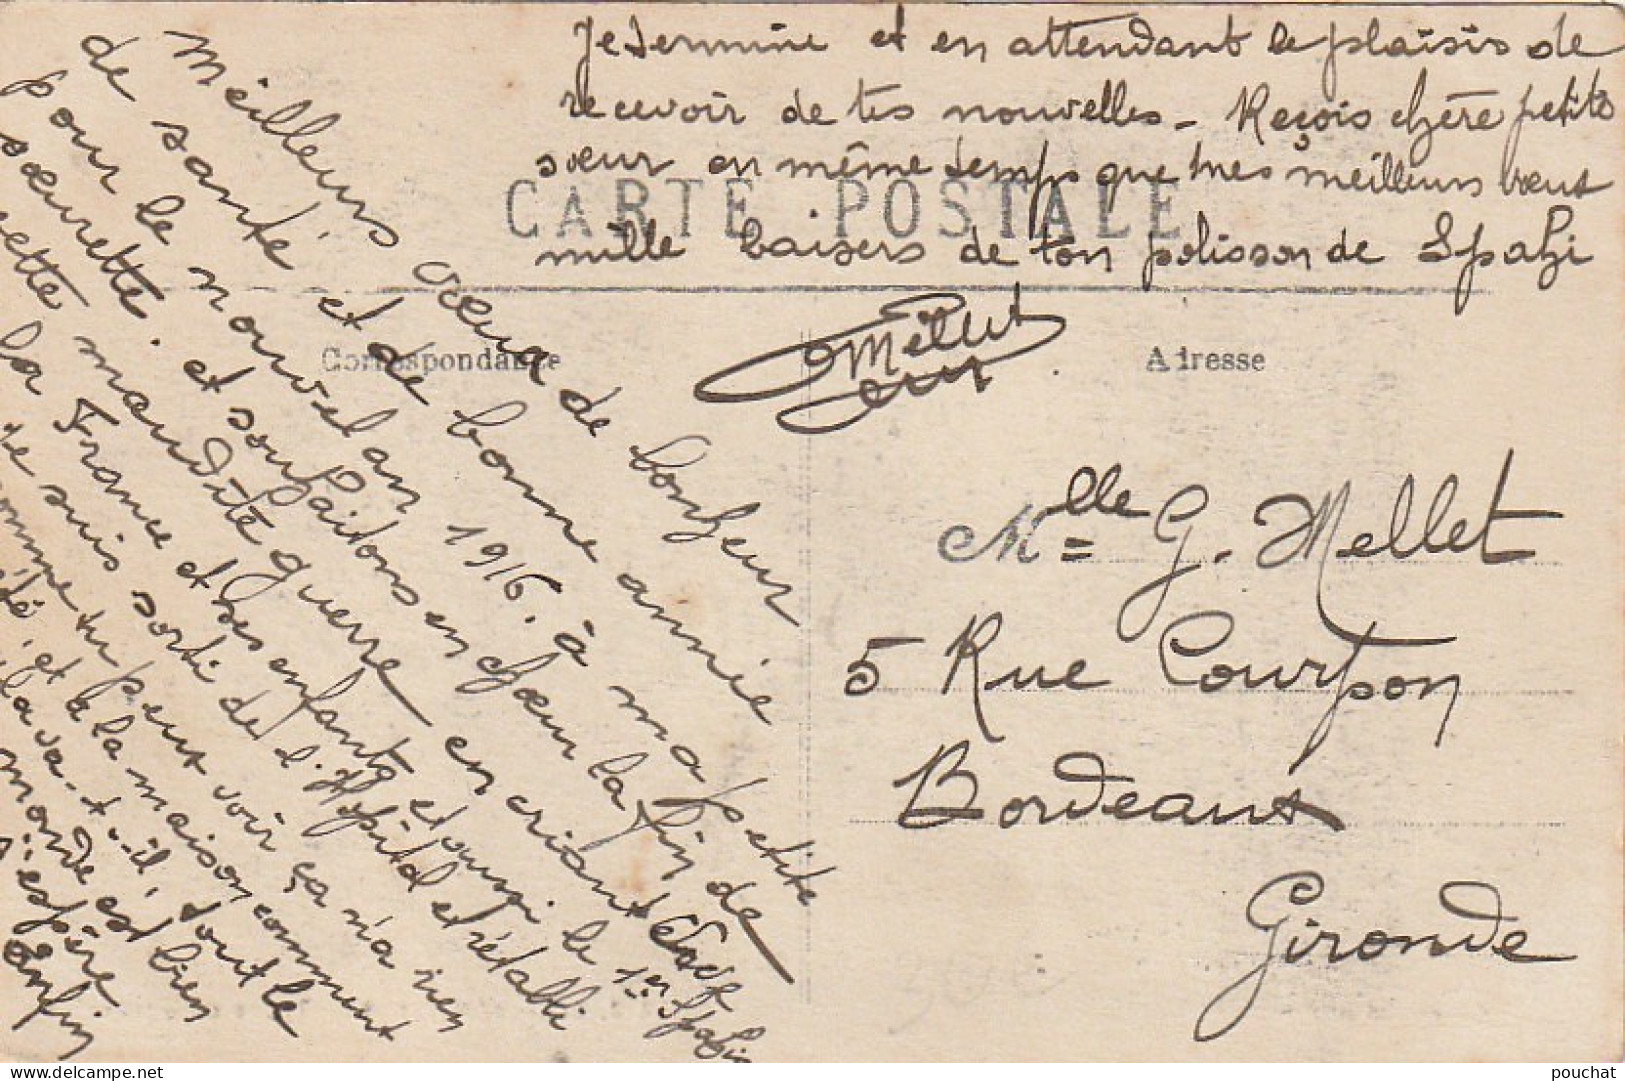 Meilleurs vœux de bonheur
de santé et de bonne année
pour le nouvel an 1916. à ma petite
sœurette. et souhaitons en chœur la fin de
cette maudite guerre en criant
la France et ses enfants et aussi le 1er Spahis
je suis sorti de l'Hôpital et rétabli
comme tu peux voir ça n'a rien
été, et à la maison comment
la va-t-il, tout le
monde est bien
j'espère
enfin
Je termine et en attendant le plaisir de
recevoir de tes nouvelles - Reçois chère petite
sœur en même temps que mes meilleurs vœux
mille baisers de ton polisson de Spahi
Mellet
CARTE POSTALE
Correspondance
Adresse
Mlle G. Mellet
5 Rue Courpon
Bordeaux
Gironde
pouchat